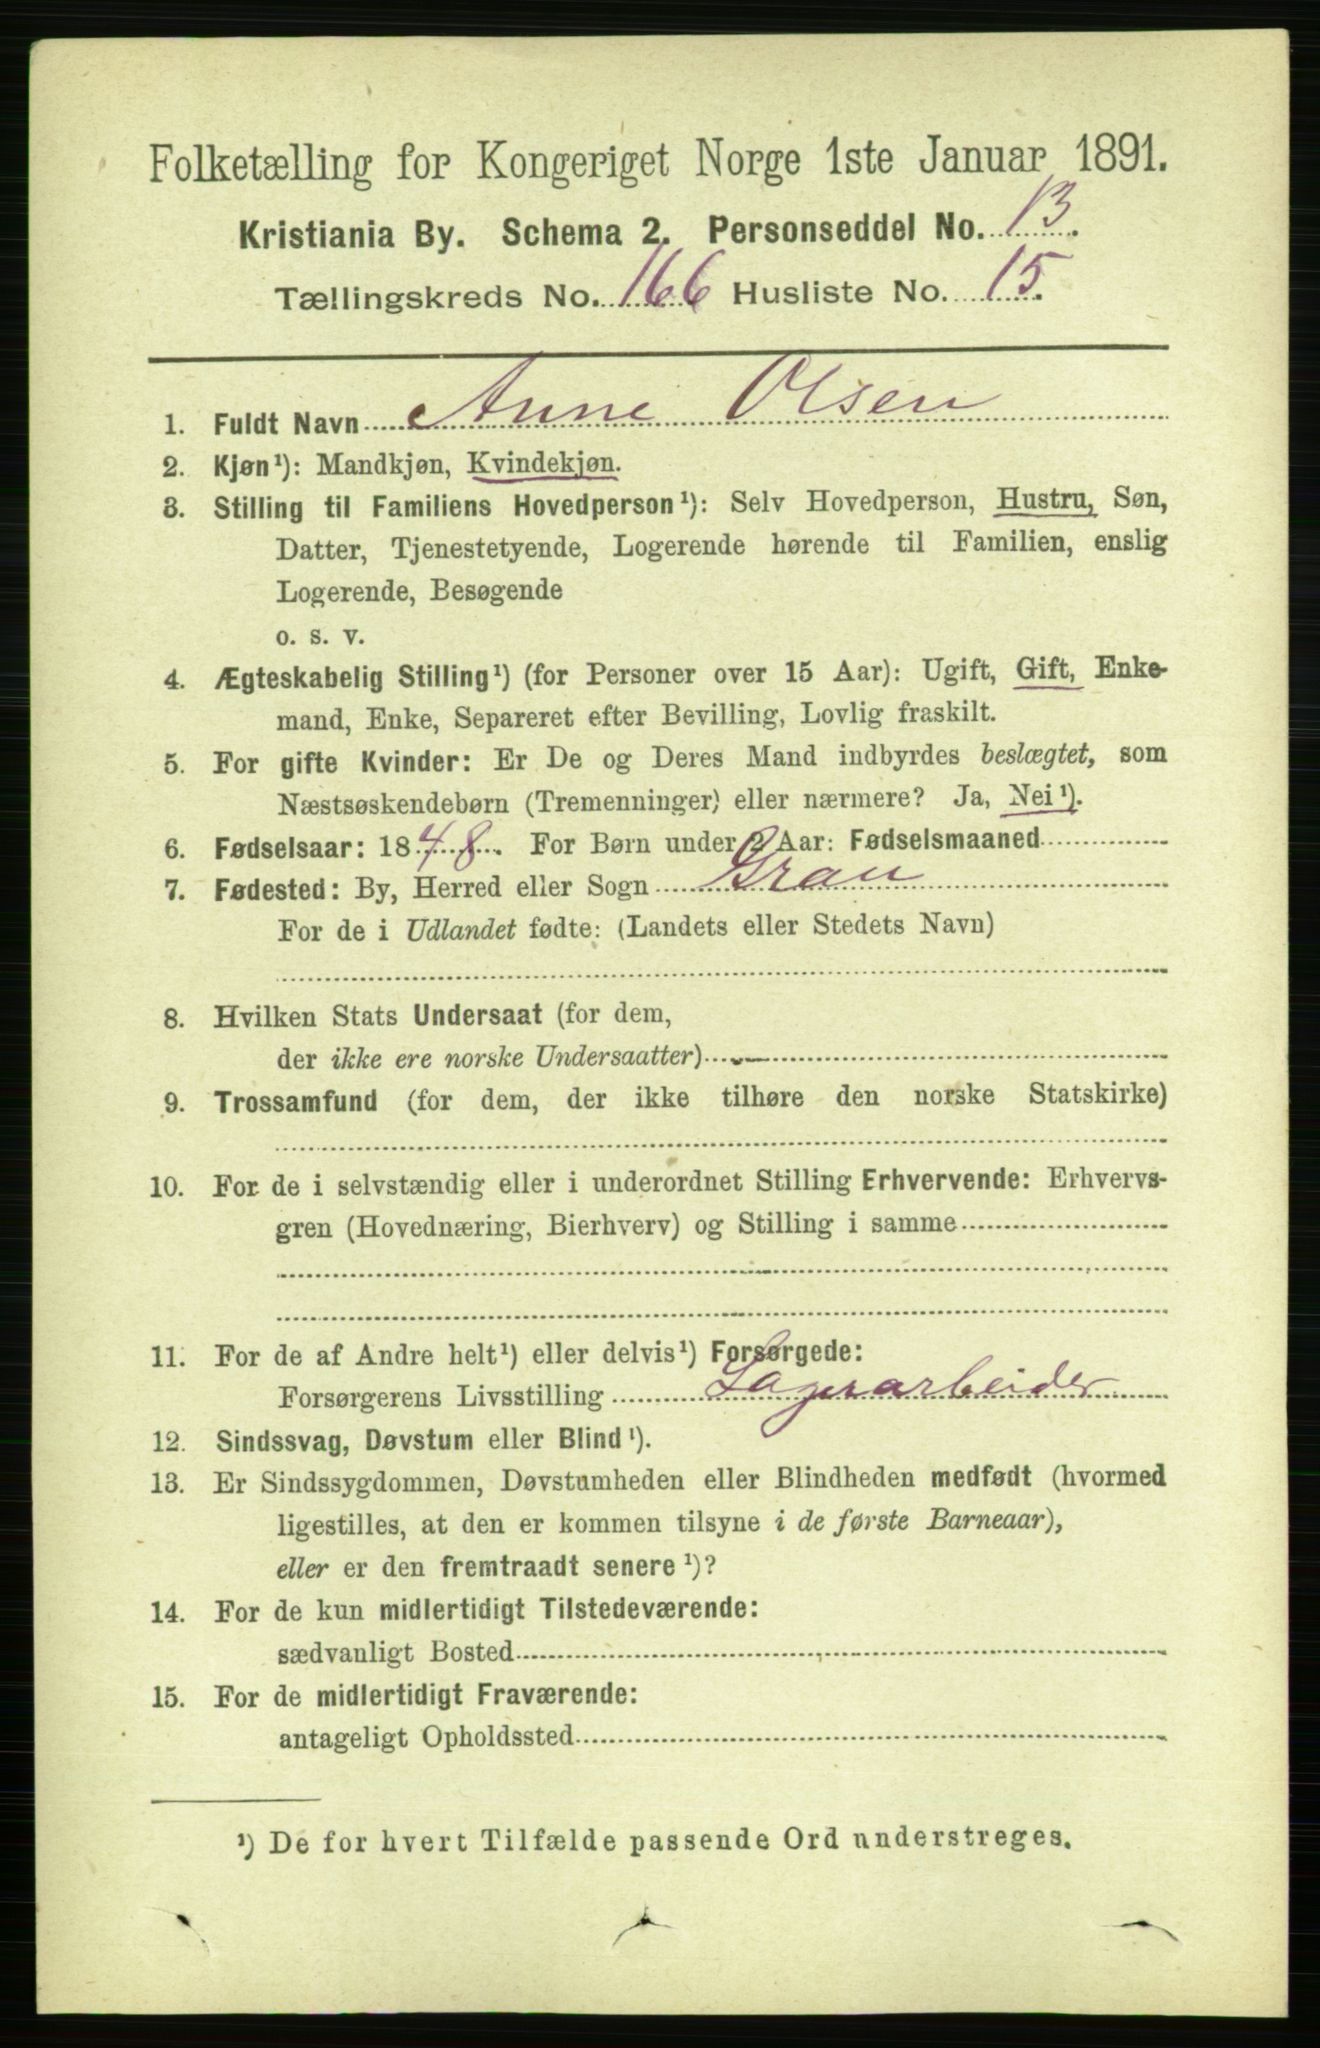 Folketælling for Kongeriget Norge 1ste Januar 1891.
Kristiania By. Schema 2. Personseddel No. 13.
Tællingskreds No. 166 Husliste No. 15.
1. Fuldt Navn Anne Olsen
2. Kjøn¹): Mandkjøn, Kvindekjøn.
3. Stilling til Familiens Hovedperson¹): Selv Hovedperson, Hustru, Søn,
Datter, Tjenestetyende, Logerende hørende til Familien, enslig
Logerende, Besøgende
o. s. v.
4. Ægteskabelig Stilling¹) (for Personer over 15 Aar): Ugift, Gift, Enke-
mand, Enke, Separeret efter Bevilling, Lovlig fraskilt.
5. For gifte Kvinder: Er De og Deres Mand indbyrdes beslægtet, som
Næstsøskendebørn (Tremenninger) eller nærmere? Ja, Nei¹).
6. Fødselsaar: 1848. For Børn under 2 Aar: Fødselsmaaned
7. Fødested: By, Herred eller Sogn Gran
For de i Udlandet fødte: (Landets eller Stedets Navn)
8. Hvilken Stats Undersaat (for dem,
der ikke ere norske Undersaatter)
9. Trossamfund (for dem, der ikke tilhøre den norske Statskirke)
10. For de i selvstændig eller i underordnet Stilling Erhvervende: Erhvervs-
gren (Hovednæring, Bierhverv) og Stilling i samme
11. For de af Andre helt¹) eller delvis¹) Forsørgede:
Forsørgerens Livsstilling Lagerarbeider
12. Sindssvag, Døvstum eller Blind¹).
13. Er Sindssygdommen, Døvstumheden eller Blindheden medfødt (hvormed
ligestilles, at den er kommen tilsyne i de første Barneaar),
eller er den fremtraadt senere¹)?
14. For de kun midlertidigt Tilstedeværende:
sædvanligt Bosted
15. For de midlertidigt Fraværende:
antageligt Opholdssted
¹) De for hvert Tilfælde passende Ord understreges.